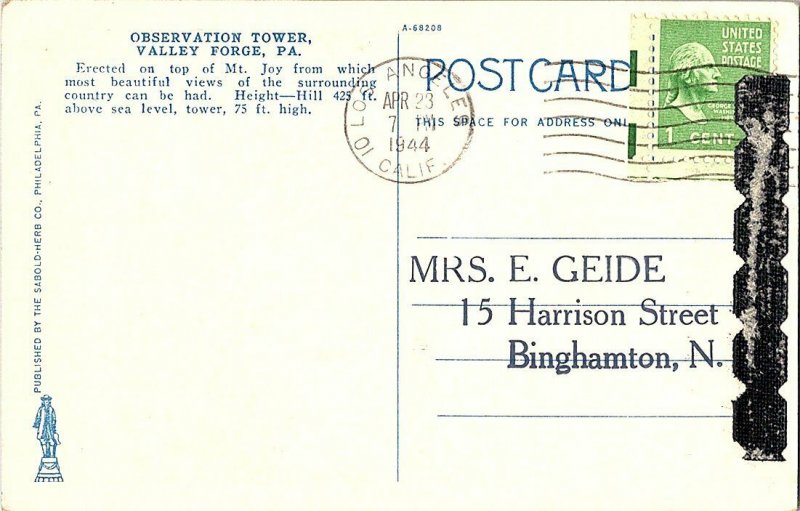 OBSERVATION TOWER,
VALLEY FORGE, PA.
Erected on top of Mt. Joy from which
most beautiful views of the surrounding
country can be had. Height—Hill 425 ft.
above sea level, tower, 75 ft. high.
PUBLISHED BY THE SABOLD-HERB CO., PHILADELPHIA, PA.
A-68208
POST CARD
THIS SPACE FOR ADDRESS ONL
LOS ANGELES
APR 23
7
1944
10 CALIF.
UNITED
STATES
POSTAGE
GEORGE
1 CENT
MRS. E. GEIDE
15 Harrison Street
Binghamton, N.